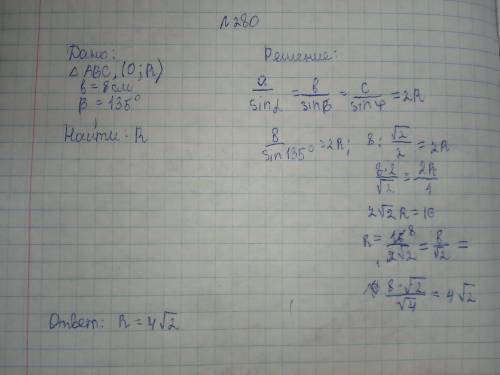 №280
Дано:
△ABC, (O; R)
b = 8 см
β = 135°
Найти - R
Решение:
a/sinα = b/sinβ = c/sinφ = 2R
8/sin135° = 2R; 8 : √2/2 = 2R
8·2/√2 = 2R/1
2√2R = 16
R = 16 8/2√2 = 8/√2 =
8·√2/√4 = 4√2
Ответ: R = 4√2